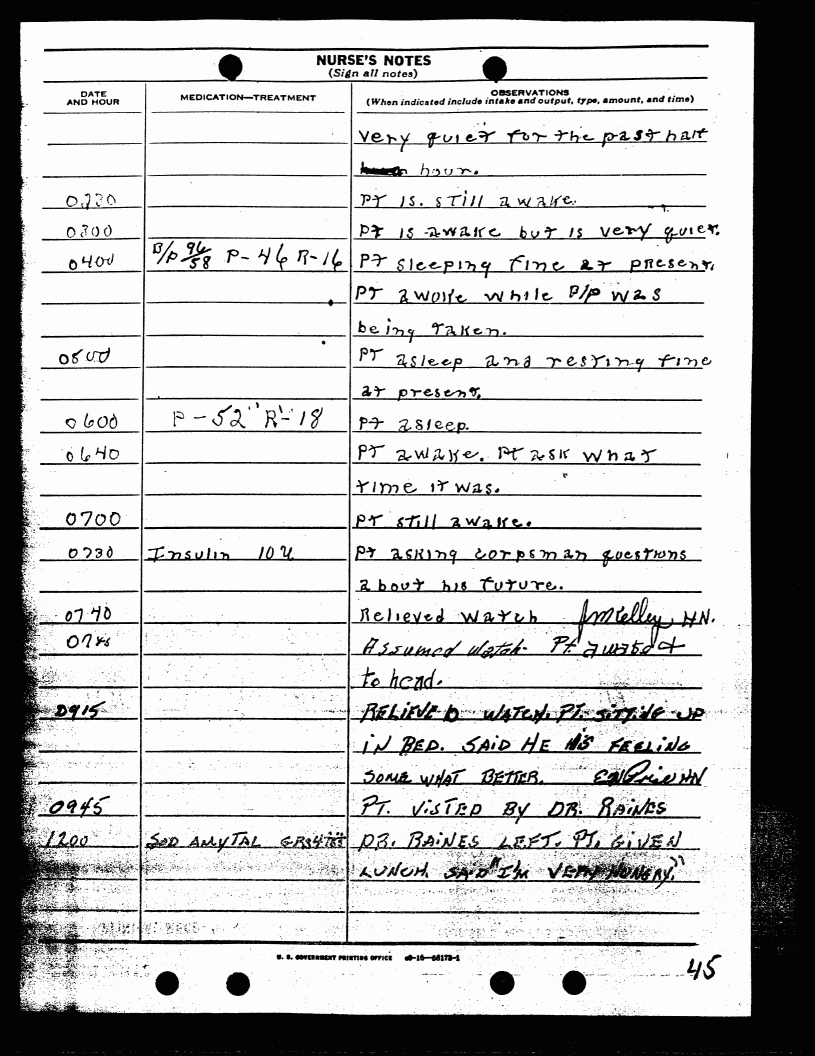 NURSE'S NOTES
(Sign all notes)
DATE AND HOUR MEDICATION—TREATMENT OBSERVATIONS
(When indicated include intake and output, type, amount, and time)
very quiet for the past half
hour.
PT is. still awake.
0300 PT is awake but is very quiet.
0400 B/P 96/58 P-46 R-16 PT sleeping fine at present.
PT awoke while B/P was
being taken.
0500 PT asleep and resting fine
at present.
0600 P-52 R-18 PT asleep.
0640 PT awake. Pt ask what
time it was.
0700 PT still awake.
0730 Insulin 10 U PT asking corpsman questions
about his future.
0740 Relieved watch HN.
Assumed watch- Pt
to head.
0915 RELIEVED WATCH. PT. SITTING UP
IN BED. SAID HE IS FEELING
SOME WHAT BETTER. HN
0945 PT. VISTED BY DR. RAINES
1200 SOD AMYTAL DR. RAINES LEFT. PT. GIVEN
LUNCH. SAID "I'M VERY HUNGRY."
U. S. GOVERNMENT PRINTING OFFICE
45